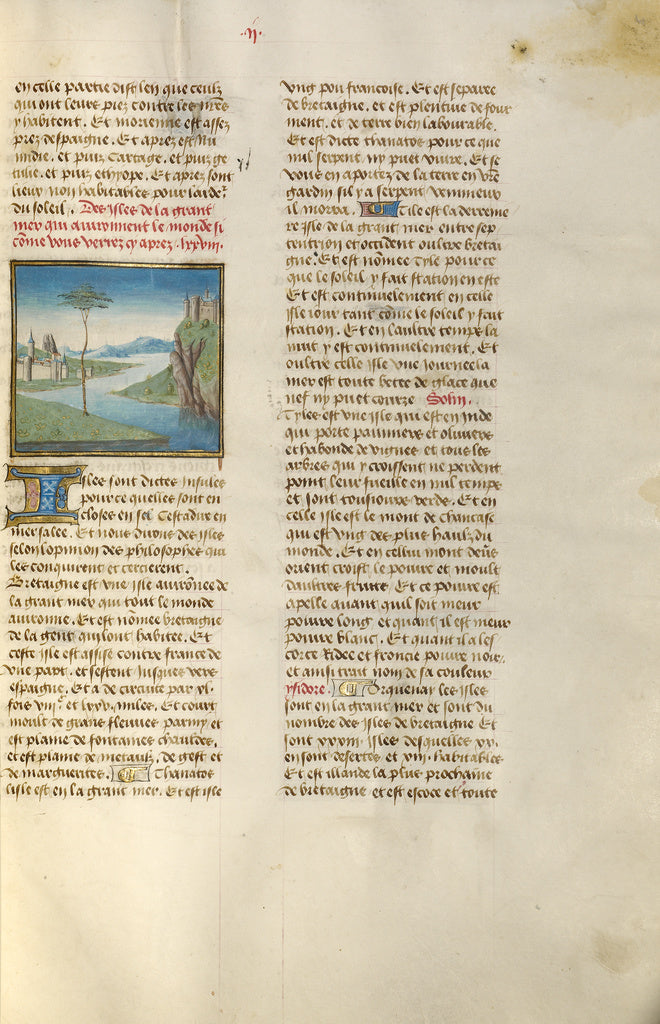 .ii.
en celle partie dist len que ceulz
qui ont leurs piez contre les nr̃es
y habitent. Et morienne est assez
prez despaigne. Et aprez est Nu
midie. et puiz Cartage. et puiz ge
tulie. et puiz ethyope. Et aprez sont
lieux non habitables pour larde2
du soleil. Des isles de la grant
mer qui auironnent le monde si
cõme vous verrez cy aprez. lxxviii.
Isles sont dictes insules
pour ce quelles sont en
closes en sel Cest adire en
mer salee. Et nous dirons des isles
selon lopinion des philosophes qui
les conquirent et cercierent.
Bretaigne est vne isle auirõnee de
la grant mer qui tout le monde
auironne. Et est nõmee bretaigne
de la gent qui lont habitee. Et
ceste isle est assise contre france de
vne part. et sestent iusques vers
espaigne. Et a de circuite par xl.
fois viii. et lxxv. miles. Et court
moult de grans fleuues parmy et
est plaine de fontaines chauldes.
et est plaine de metaulx. de gest et
de marguerites. Thanatos
lisle est en la grant mer. Et est isle
vng pou francoise. Et est separee
de bretaigne. et est plentiue de four
ment. et de terre bien labourable.
Et est dicte thanatos pour ce que
nul serpent ny puet viure. Et se
vous en aportez de la terre en vr̃e
gardin sil y a serpent venimeux
il morra. Tile est la derreme
re isle de la grant mer entre sep
tentrion et occident oultre bretai
gne. Et est nõmee Tyle pour ce
que le soleil y fait station en este
Et est continuelement en celle
isle iour tant cõme le soleil y fait
station. Et en laultre temps la
nuit y est continuelement. Et
oultre celle isle vne journee la
mer est toute betee de glace que
nef ny puet courre Solin.
Tyles est vne isle qui est en inde
qui porte paumiers et oliuiers
et habonde de vignes et tous les
arbres qui y croissent ne perdent
point leur fueille en nul temps
et sont tousiours verds. Et en
celle isle est le mont de chaucase
qui est vng des plus haulz du
monde. Et en cellui mont deũs
orient croist le poiure et moult
daultres fruits. Et ce poiure est
apelle auant quil soit meur
poiure long et quant il est meur
poiure blanc. Et quant il a les
corce ridee et froncie poiure noir.
et ainsi trait nom de sa couleur
ysidore. Orquenay les isles
sont en la grant mer et sont du
nombre des isles de bretaigne Et
sont xxxiii. isles desquelles xx.
en sont desertes et xiii. habitables
Et est illande la plus prochaine
de bretaigne et est escoce et toute